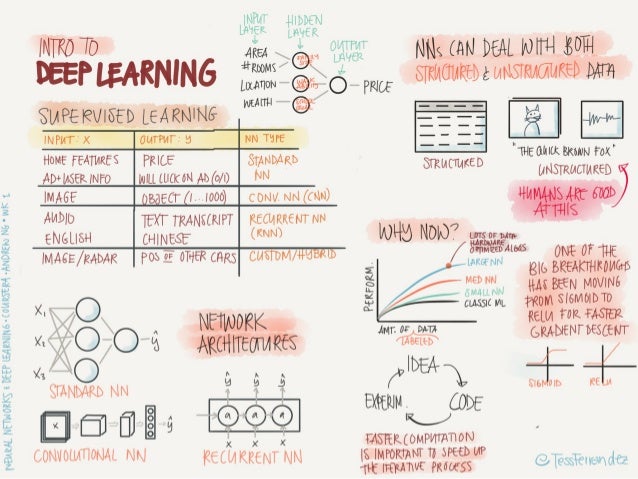 INTRO TO
DEEP LEARNING
INPUT LAYER
HIDDEN LAYER
OUTPUT LAYER
AREA
# ROOMS
LOCATION
WEALTH
PRICE
SUPERVISED LEARNING
INPUT: X OUTPUT: y NN TYPE
HOME FEATURES PRICE STANDARD
AD+USER INFO WILL CLICK ON AD (0/1) NN
IMAGE OBJECT (1...1000) CONV. NN (CNN)
AUDIO TEXT TRANSCRIPT RECURRENT NN
ENGLISH CHINESE (RNN)
IMAGE/RADAR POS OF OTHER CARS CUSTOM/HYBRID
X₁
X₂
X₃
ŷ
STANDARD NN
NETWORK
ARCHITECTURES
X
ŷ
CONVOLUTIONAL NN
ŷ ŷ ŷ
a a a
x x x
RECURRENT NN
NNs CAN DEAL WITH BOTH
STRUCTURED & UNSTRUCTURED DATA
STRUCTURED
"THE QUICK BROWN FOX"
UNSTRUCTURED
HUMANS ARE GOOD
AT THIS
WHY NOW?
LOTS OF DATA
HARDWARE
OPTIMIZED ALGOS
LARGE NN
MED NN
SMALL NN
CLASSIC ML
PERFORM.
AMT. OF DATA
LABELED
ONE OF THE
BIG BREAKTHROUGHS
HAS BEEN MOVING
FROM SIGMOID TO
RELU FOR FASTER
GRADIENT DESCENT
SIGMOID
RELU
IDEA
EXPERIM.
CODE
FASTER COMPUTATION
IS IMPORTANT TO SPEED UP
THE ITERATIVE PROCESS
@TessFerrandez
NEURAL NETWORKS & DEEP LEARNING • COURSERA • ANDREW NG • WK 1